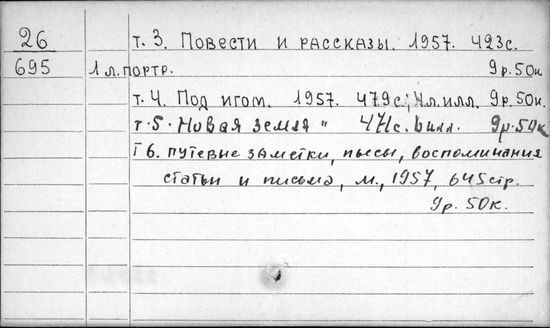 26 т. 3. Повести и рассказы. 1957. 423с.
695 1 л. портр. 9р. 50к.
т. 4. Под игом. 1957. 479с; 4л.илл. 9р. 50к.
т. 5. Новая земля " 471с. 6илл. 9р. 50к
Т 6. путевые заметки, пьесы, воспоминания
статьи и письма, м., 1957, 645стр.
9р. 50к.